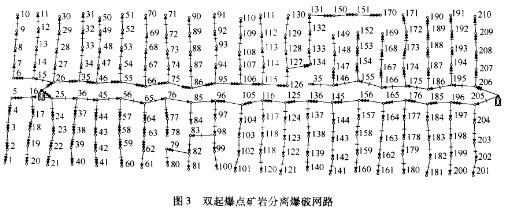 131 150 151 170
10 11 30 31 50 51 70 71 90 91 110 111 130 171 190 191 210
9 12 29 32 49 52 69 72 89 92 109 112 129 132 149 152 169 172 189 192 209
8 13 28 33 48 53 68 73 88 93 108 113 128 133 148 153 168 173 188 193 208
7 14 27 34 47 54 67 74 87 94 107 114 127 134 147 154 167 174 187 194 207
6 15 26 35 46 55 66 75 86 95 106 115 126 35 146 155 166 175 186 195 206
5 16 25 36 45 56 65 76 85 96 105 116 125 136 145 156 165 176 185 196 205
4 17 24 37 44 57 64 77 84 97 104 117 124 137 144 157 164 177 184 197 204
3 18 23 38 43 58 63 78 83 98 103 118 123 138 143 158 163 178 183 198 203
2 19 22 39 42 59 62 79 82 99 102 119 122 139 142 159 162 179 182 199 202
1 20 21 40 41 60 61 80 81 100 101 120 121 140 141 160 161 180 181 200 201
图 3 双起爆点矿岩分离爆破网路